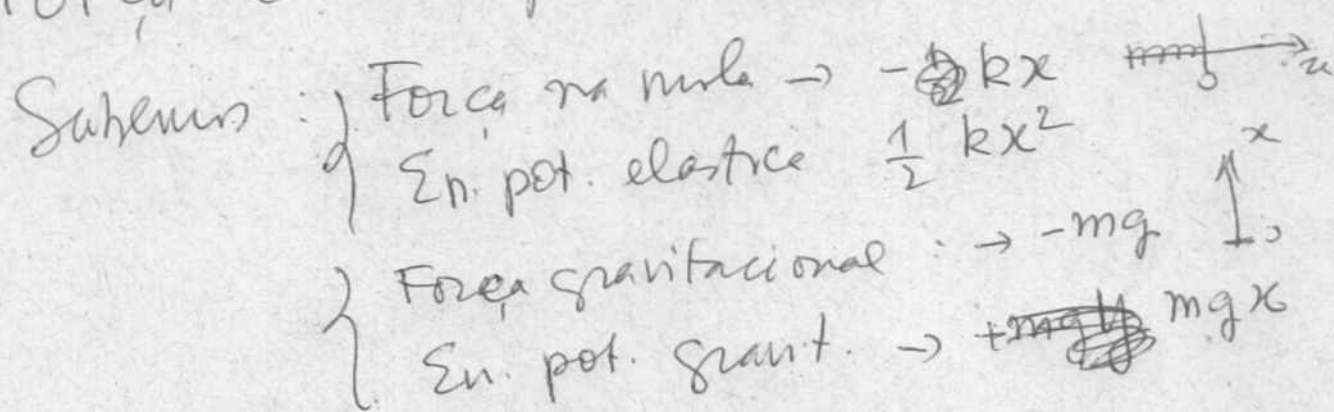 Sabemos : { Força na mola → - kx
En. pot. elastica 1/2 kx²
x
{ Força gravitacional : → -mg
En. pot. gravit. → + mgx